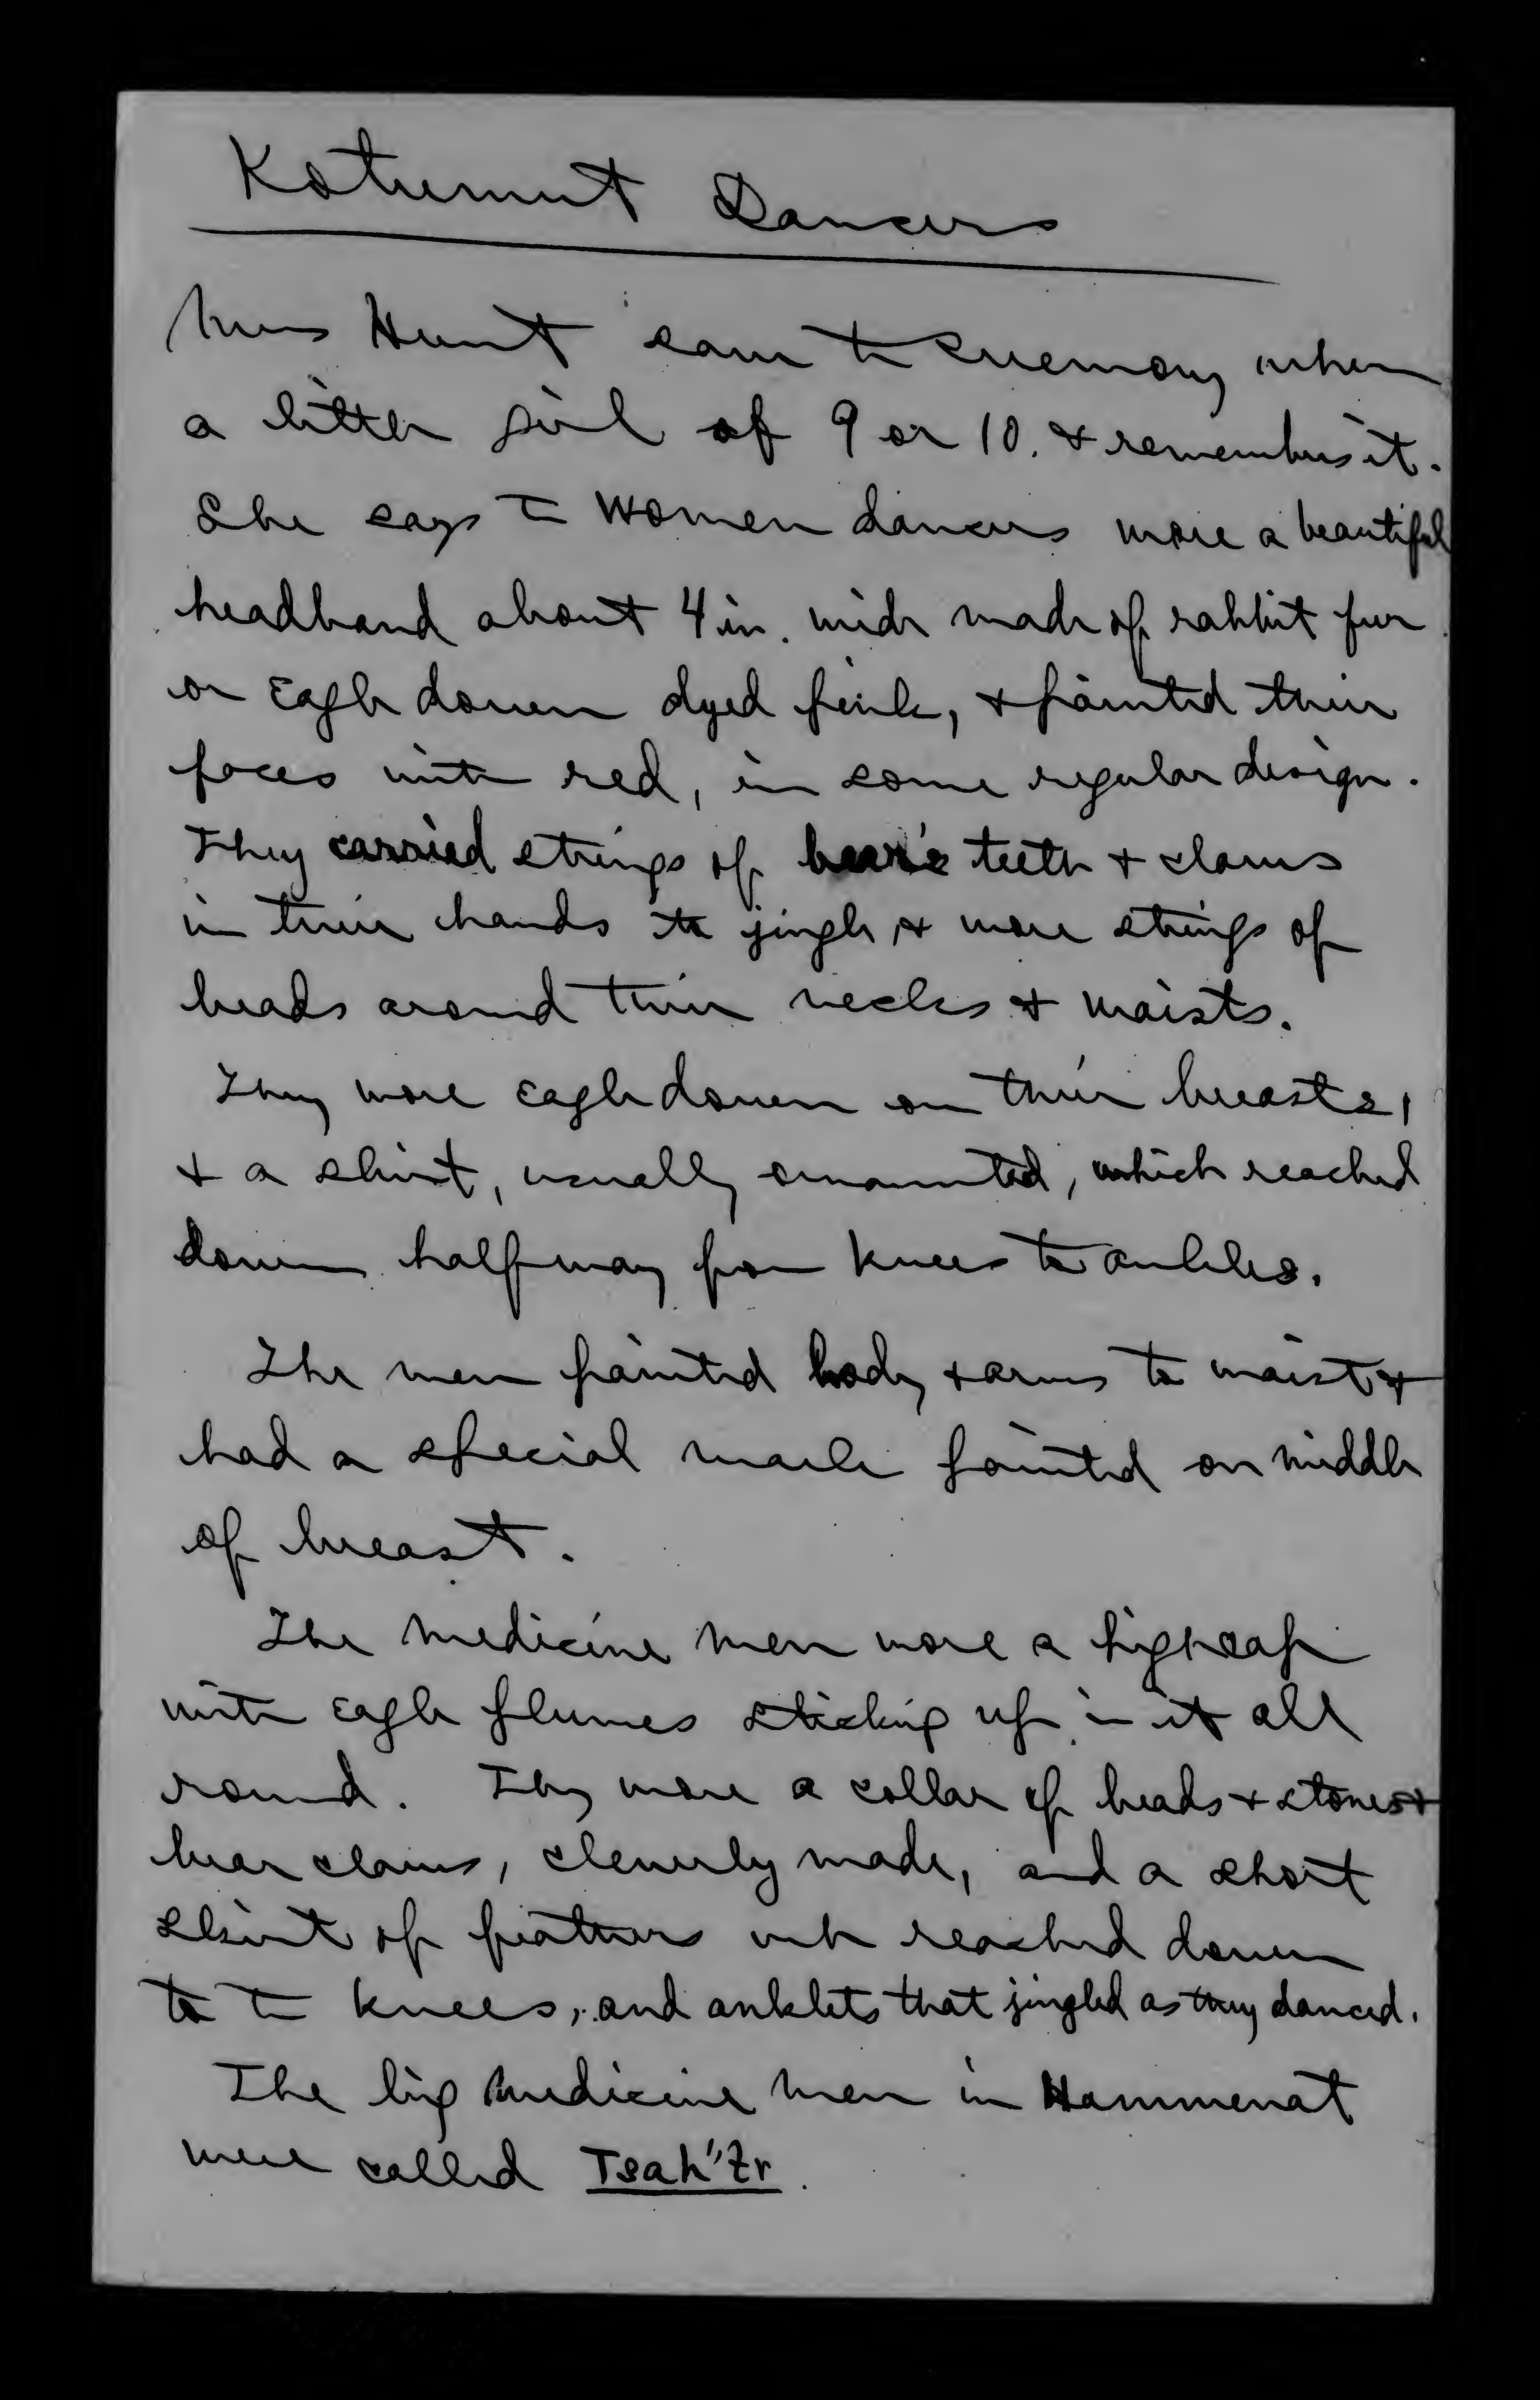 Kotumut Dancers
Mrs Hunt saw the ceremony when
a little girl of 9 or 10. & remembers it.
She says T— women dancers wore a beautiful
headband about 4 in. wide made of rabbit fur
or Eagle down dyed pink, & painted their
faces with red, in some regular design.
They carried strings of bear's teeth & claws
in their hands to jingle, & wore strings of
beads around their necks & waists.
They wore Eagle down on their breasts,
& a skirt, usually ornamented, which reached
down halfway from knees to ankles.
The men painted body & arms to waist &
had a special mark painted on middle
of breast.
The medicine men wore a high cap
with Eagle plumes sticking up in it all
round. They wore a collar of beads & stones &
bear claws, cleverly made, and a short
skirt of feathers wh reached down
to T— knees, and anklets that jingled as they danced.
The big medicine men in Hammenat
were called Tsah''Zr.